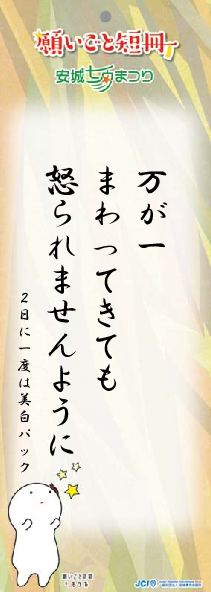 願いごと短冊
安城七夕まつり
万が一
まわってきても
怒られませんように
2日に一度は美白パック
願いごと短冊
JCI